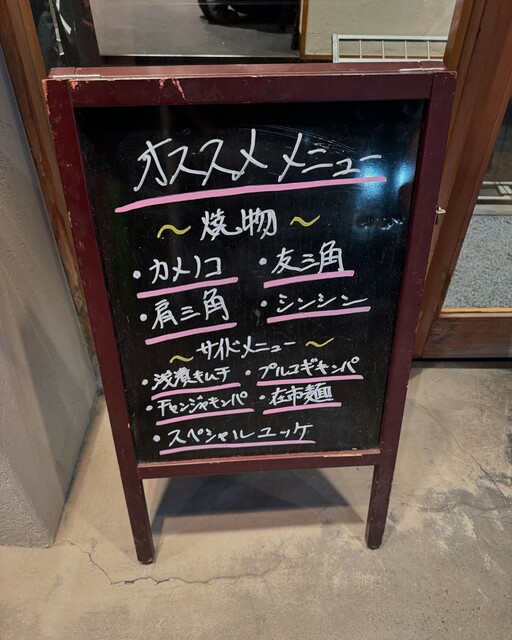 オススメメニュー
〜焼物〜
・カメノコ ・友三角
・肩三角 ・シンシン
〜サイドメニュー〜
・浅漬キムチ ・プルコギキンパ
・チャンジャキンパ ・在市麺
・スペシャルユッケ